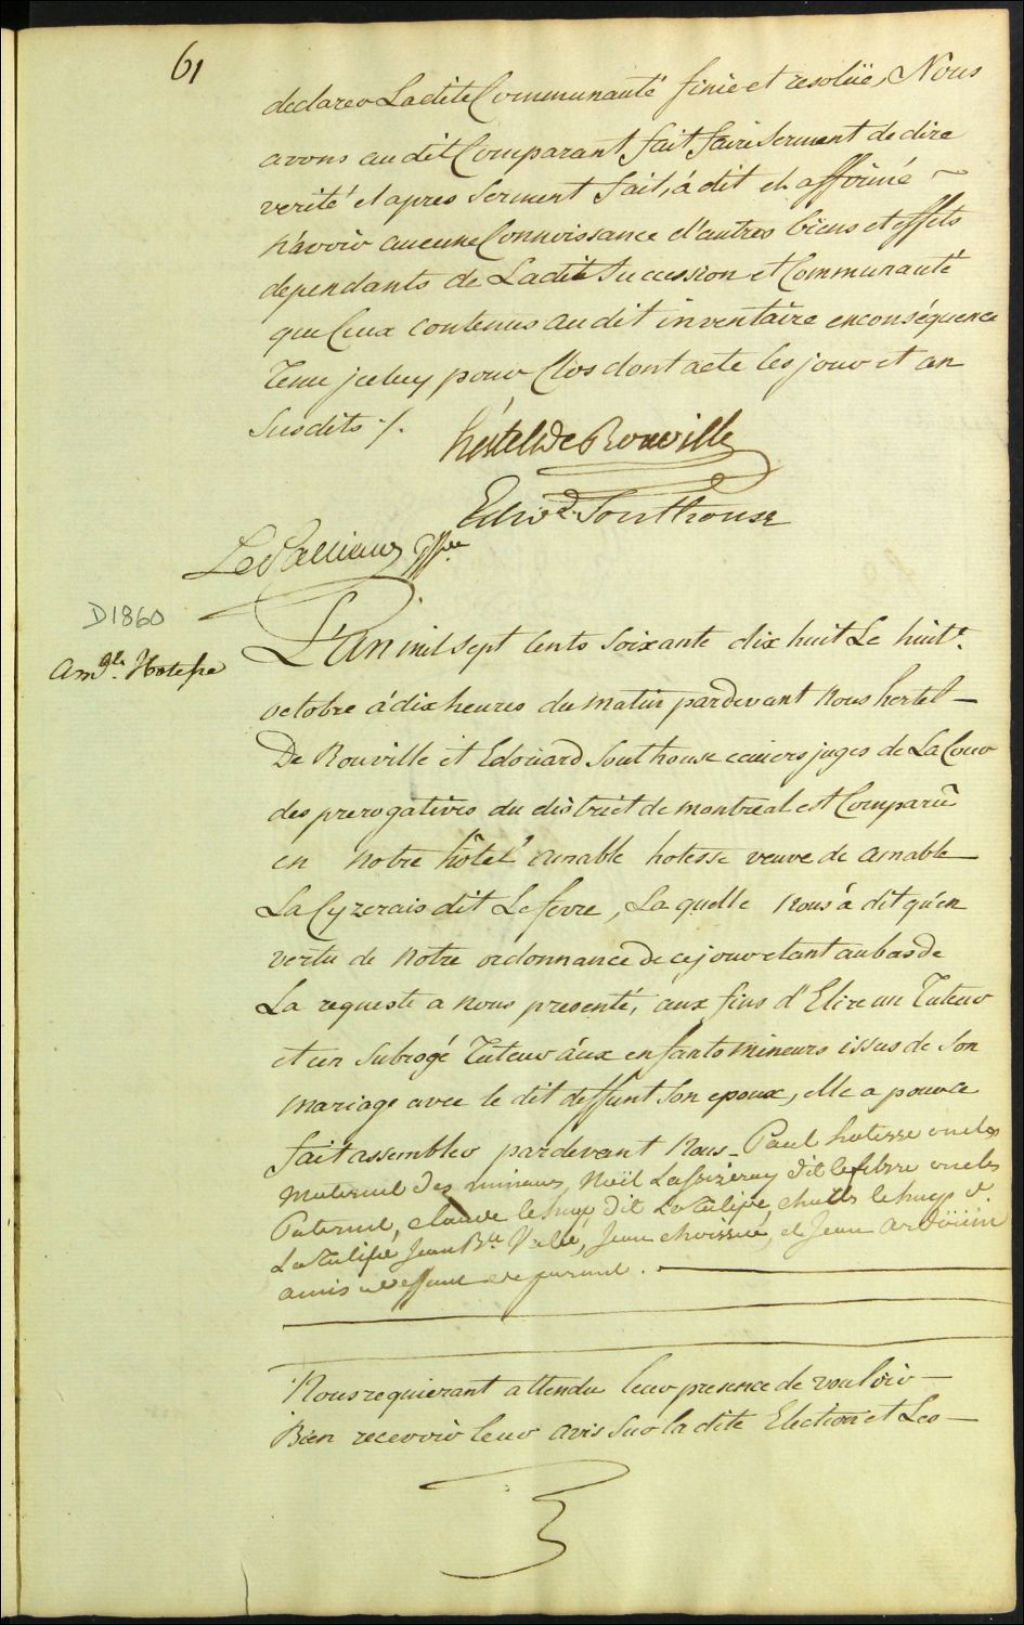 61
declarer Ladite Communauté finie et resolüe, Nous
avons audit Comparant fait faire Serment de dire
verité et apres Serment fait, á dit et affirmé ~
n'avoir aucune Connoissance d'autres biens et effets
dependants de Ladite Succession et Communauté
que Ceux contenus audit inventaire enconséquence
tenu jceluy pour Clos dont acte les jour et an
Susdits ./.
hertel De Rouville
Edwd. Southouse
D1860
L'An mil sept Cents soixante dix huit Le huite.
Amble. Hotesse
octobre á dix heures du matin pardevant Nous hertel —
De Rouville et Edoüard Southouse ecuiers juges de La Cour
des prerogatives du district de montreal est Comparüe
en notre hôtel amable hotesse veuve de amable —
La Cyzerais dit Lefevre, La quelle Nous á dit qu'en
vertu de Notre ordonnance de ce jour etant au bas de
La requeste a nous presenté, aux fins d'Elire un Tuteur
et un Subrogé Tuteur áux enfants mineurs issus de Son
mariage avec le dit deffunt Son epoux, elle a pour ce
fait assembler pardevant Nous _ Paul hotesse oncles
Maternel des mineurs, Noël dit lefebvre oncles
Paternel, claude lehuye dit LaTulipe, lehuye d.
LaTulipe Jean Bte. Vallé, Jean et Jean Ardöüin
amis a deffaut de parens . —
Nous requierant attendu leur presence de vouloir —
Bien recevoir leur avis Sur la dite Election et Les —